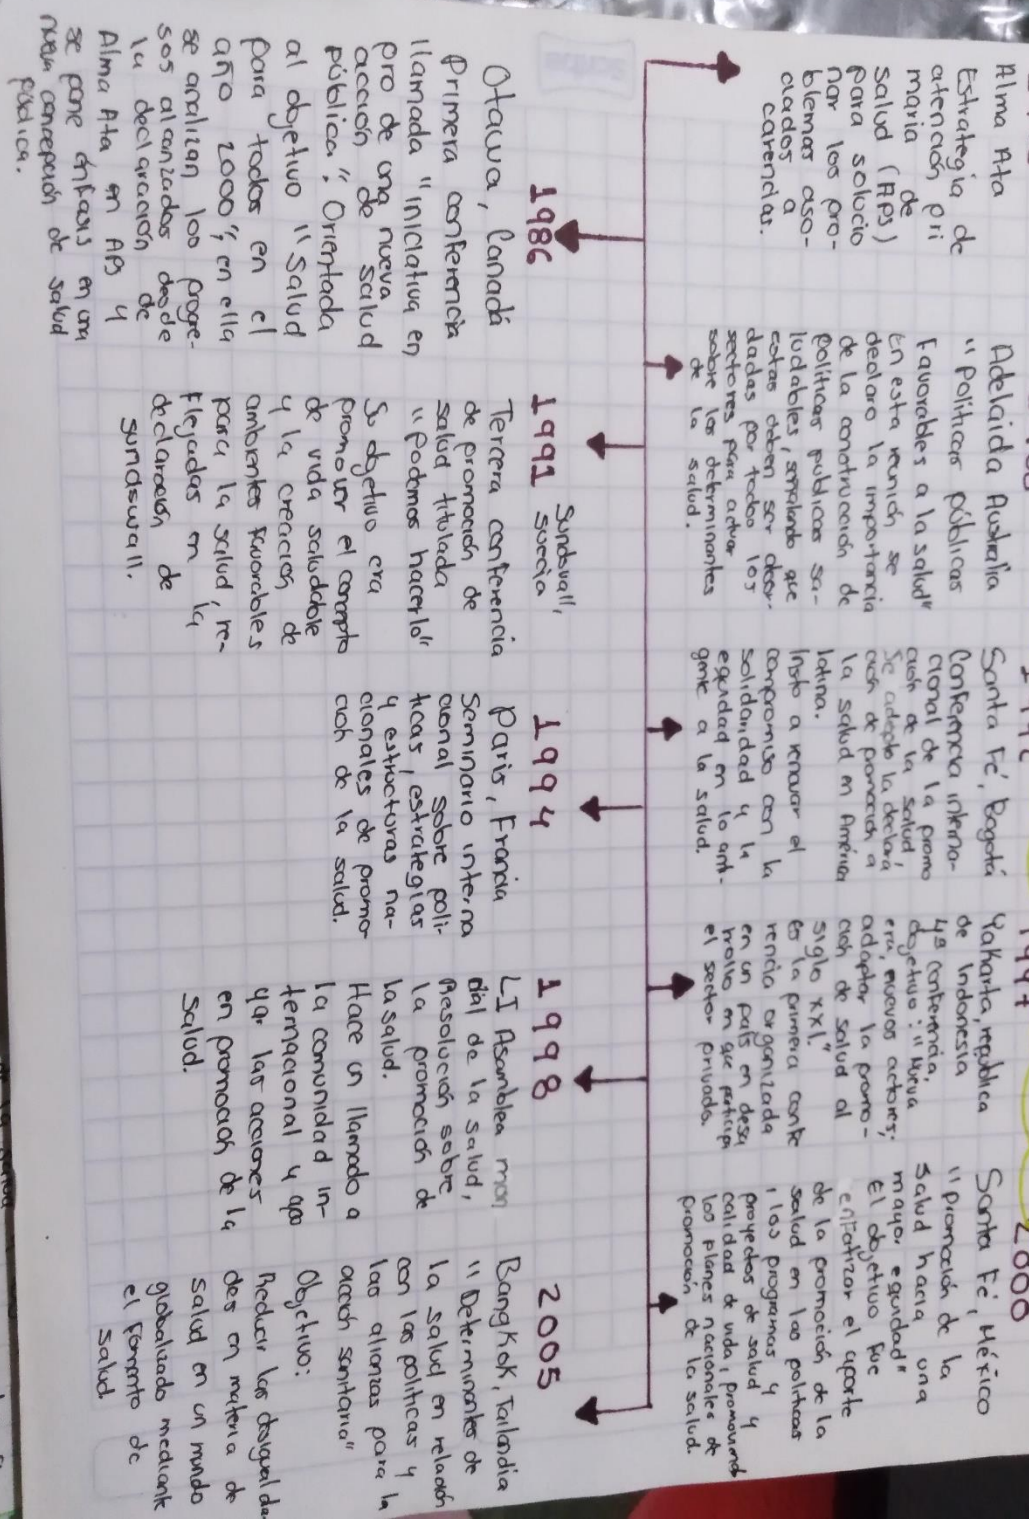 Alma Ata
Estrategia de
atención pri
maria de
salud (APS)
para solucio
nar los pro-
blemas aso-
ciados a
carencias.
Adelaida Australia
"Politicas públicas
Favorables a la salud"
En esta reunión se
declaro la importancia
de la construcción de
políticas públicas sa-
ludables, señalando que
estas deben ser abor-
dadas por todos los
sectores para actuar
sobre los determinantes
de la salud.
Santa Fé, Bogotá
Conferencia interna-
cional de la promo
ción de la salud,
se adopto la declara
ción de promoción a
la salud en América
latina.
Insto a renovar el
compromiso con la
solidaridad y la
equidad en lo ant-
gente a la salud.
1997
Yakarta, republica
de Indonesia
4ª conferencia,
objetivo: "Nueva
era, nuevos actores:
adaptar la promo-
ción de salud al
siglo XXI."
es la primera confe
rencia organizada
en un país en desa
rrollo en que participa
el sector privado.
2000
Santa Fé, México
"promoción de la
salud hacia una
mayor equidad"
El objetivo fue
enfatizar el aporte
de la promoción de la
salud en las politicas
, los programas y
proyectos de salud y
calidad de vida, promoviendo
los planes nacionales de
promoción de la salud.
1986
Otawa, Canadá
Primera conferencia
llamada "iniciativa en
pro de una nueva
acción de salud
pública". Orientada
al objetivo "Salud
para todos en el
año 2000", en ella
se analizan los progre-
sos alcanzados desde
la declaración de
Alma Ata en APS y
se pone énfasis en una
nueva concepción de salud
pública.
1991 Sundvall,
Suecia
Tercera conferencia
de promoción de
salud titulada
"Podemos hacerlo"
Su objetivo era
promover el concepto
de vida saludable
y la creación de
ambientes favorables
para la salud, re-
flejadas en la
declaración de
sundswall.
1994
Paris, Francia
Seminario interna
cional sobre polí-
ticas, estrategias
y estructuras na-
cionales de promo-
ción de la salud.
1998
LI Asamblea mun
dial de la salud,
Resolución sobre
la promoción de
la salud.
Hace un llamado a
la comunidad in-
ternacional y apo
yar las acciones
en promoción de la
salud.
2005
Bangkok, Tailandia
"Determinantes de
la salud en relación
con las politicas y
las alianzas para la
acción sanitaria"
Objetivo:
Reducir las desigualda-
des en materia de
salud en un mundo
globalizado mediante
el fomento de
salud.